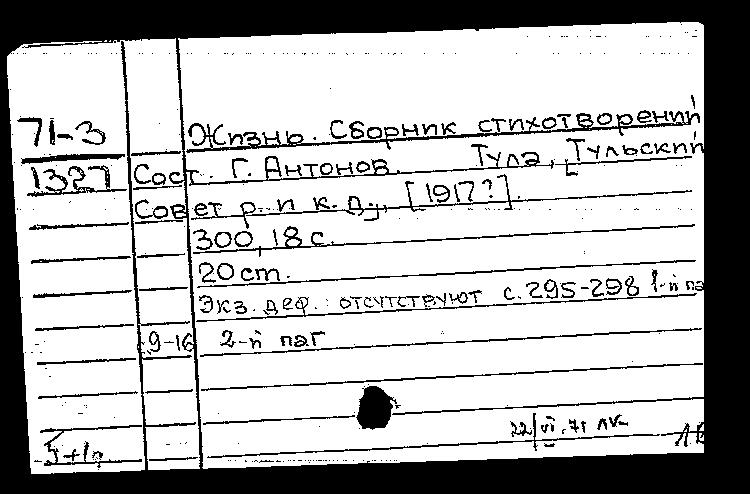 71-3 Жизнь. Сборник стихотворений
1327 Сост. Г. Антонов. Тула, [Тульский
Совет р. и к. д.], [1917?].
300, 18 с.
20 cm.
Экз. деф.: отсутствуют с. 295-298 1-й па
9-16 2-й паг
22/VI.71